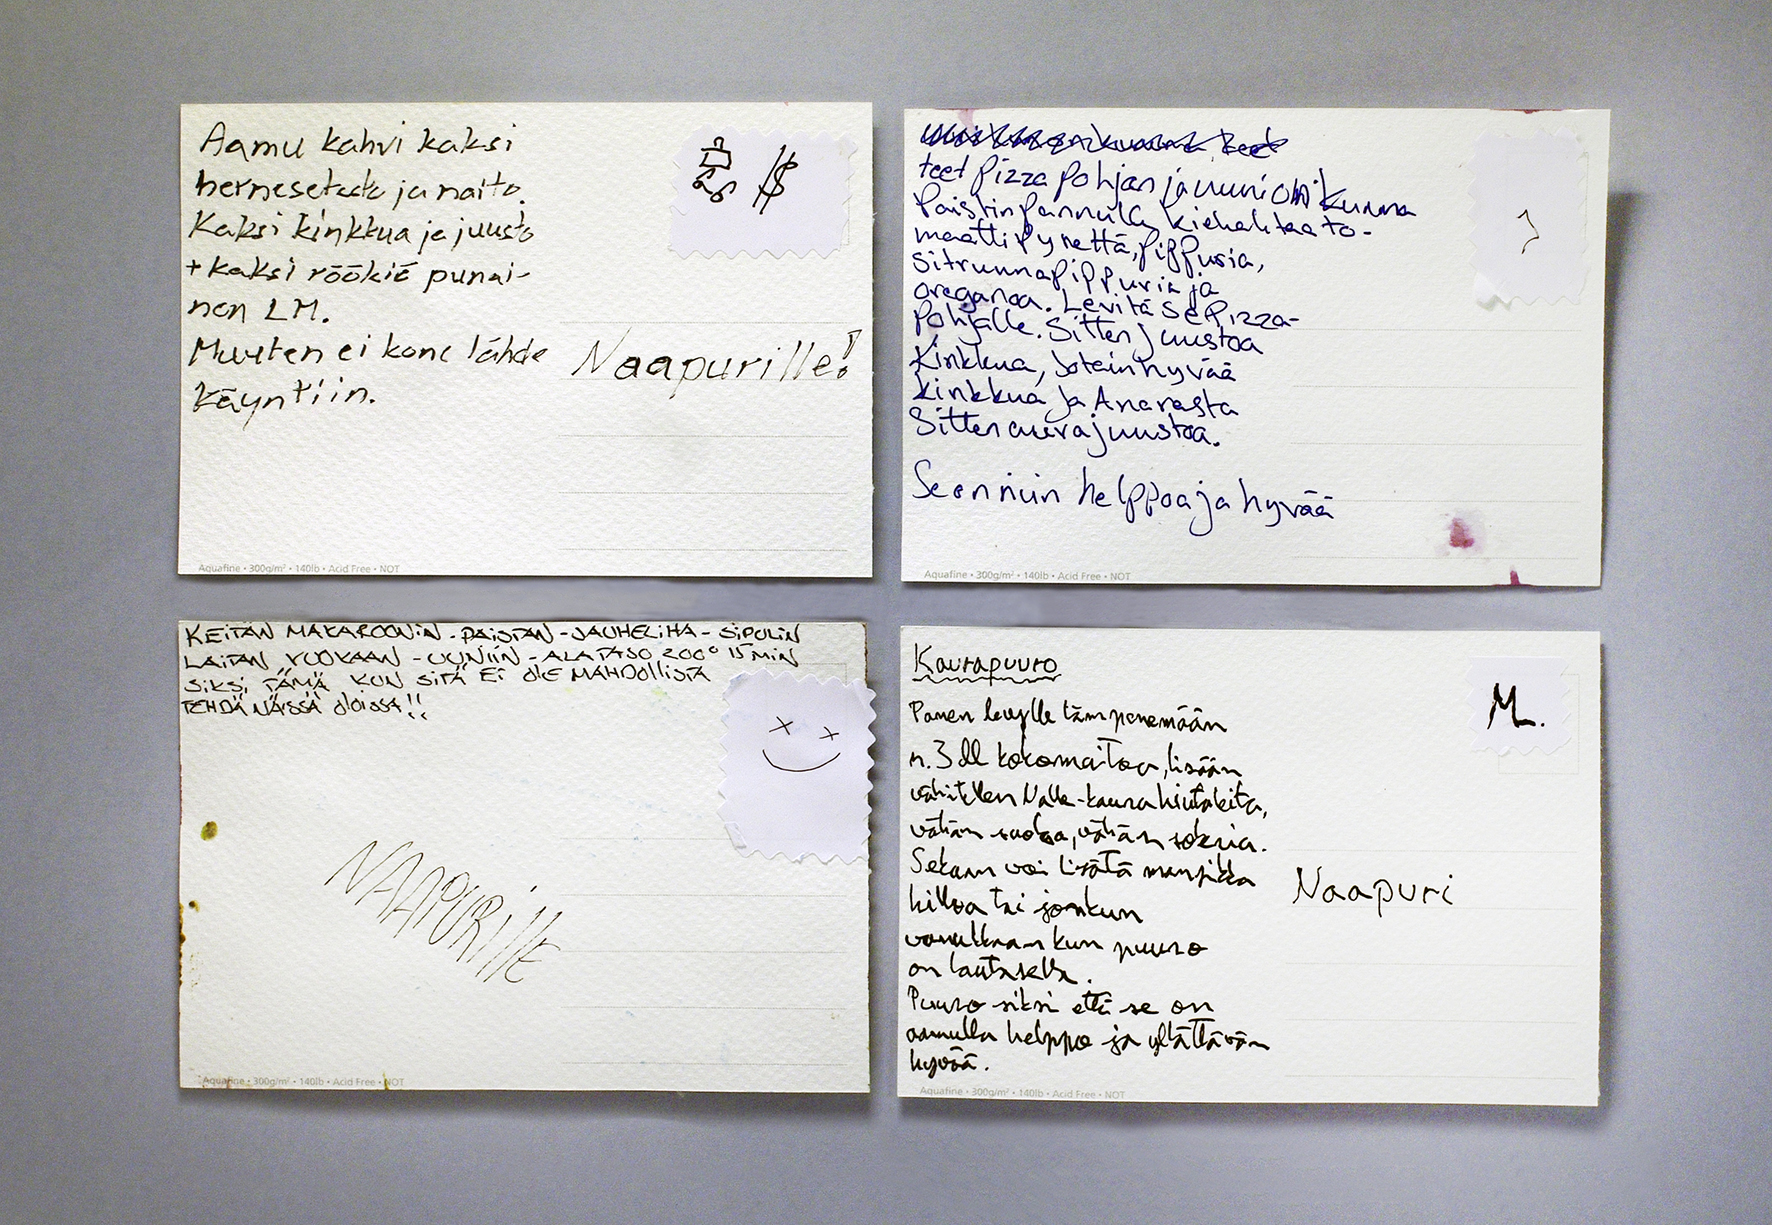 Aamu kahvi kaksi
hernesetada ja maito.
Kaksi kinkkua ja juusto
+ kaksi röökiä punai-
nen LM.
Muuten ei kone lähde
käyntiin.
$
Naapurille!
Aquafine • 300g/m² • 140lb • Acid Free • NOT
teet pizza pohjan ja uuni on kuuma
Paistinpannulla kiehahtaa to-
maattipyrettä, pippuria,
Sitruunapippuria ja
oreganoa. Levitä se Pizza-
Pohjalle. Sitten juustoa
Kinkkua, Jotain hyvää
kinkkua ja Ananasta
Sitten aurajuustoa.
Se on niin helppoa ja hyvää
Aquafine • 300g/m² • 140lb • Acid Free • NOT
KEITÄN MAKAROONIN - PAISTAN - JAUHELIHA - SIPULIN
LAITAN VUOKAAN - UUNIIN - ALATASO 200° 15 MIN
SIKSI TÄMÄ KUN SITÄ EI OLE MAHDOLLISTA
TEHDÄ NÄISSÄ OLOISSA!!
NAAPURILLE
Aquafine • 300g/m² • 140lb • Acid Free • NOT
Kaurapuuro
Panen levylle lämpenemään
n. 3 dl kokomaitoa, lisään
vähitellen Nalle-kaurahiutaleita,
vähän suolaa, vähän sokeria.
Sekaan voi lisätä mansikka
hilloa tai jonkun
vanukkaan kun puuro
on lautasella.
Puuro siksi että se on
aamulla helppo ja yllättävän
hyvää.
M.
Naapuri
Aquafine • 300g/m² • 140lb • Acid Free • NOT